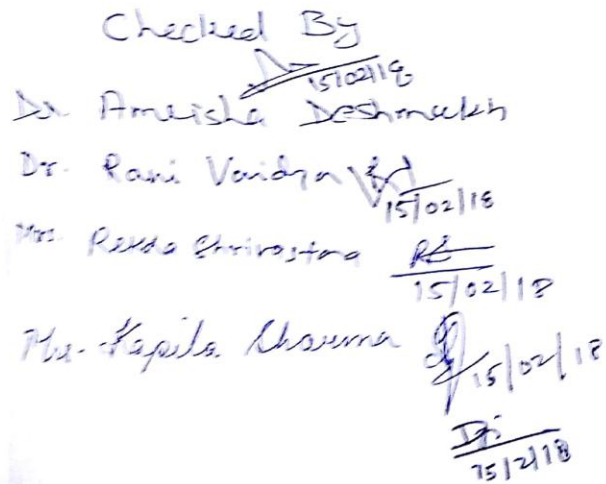 Checked By
15/02/18
Dr. Ameisha Deshmukh
Dr. Rani Vaidya
15/02/18
Mrs. Rekha Shrivastava
15/02/18
Mr. Kapila Sharma
15/02/18
15/2/18